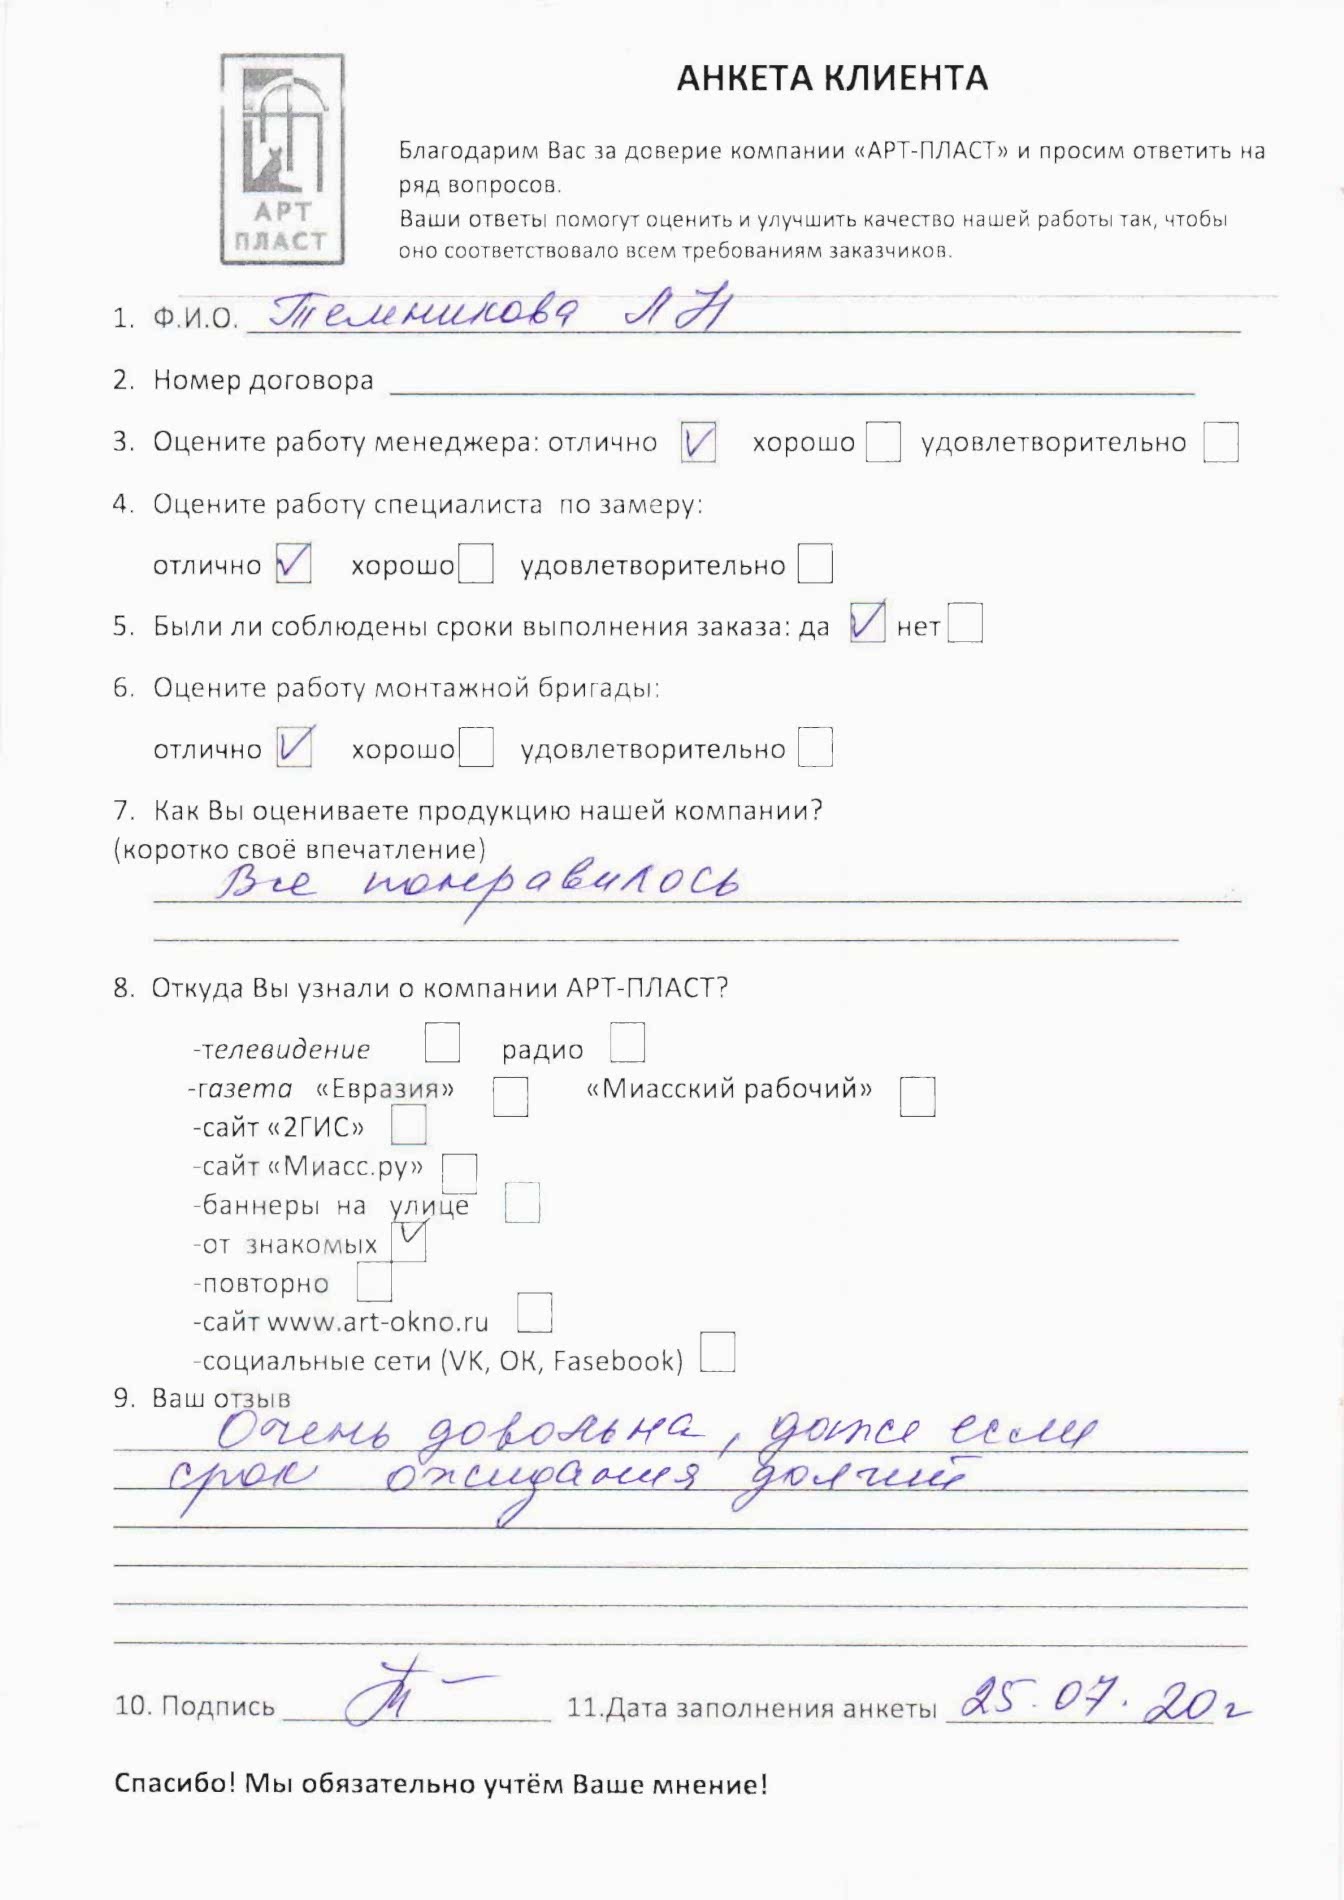 АРТ
ПЛАСТ
АНКЕТА КЛИЕНТА
Благодарим Вас за доверие компании «АРТ-ПЛАСТ» и просим ответить на
ряд вопросов.
Ваши ответы помогут оценить и улучшить качество нашей работы так, чтобы
оно соответствовало всем требованиям заказчиков.
1. Ф.И.О. Темникова Л Н
2. Номер договора
3. Оцените работу менеджера: отлично хорошо удовлетворительно
4. Оцените работу специалиста по замеру:
отлично хорошо удовлетворительно
5. Были ли соблюдены сроки выполнения заказа: да нет
6. Оцените работу монтажной бригады:
отлично хорошо удовлетворительно
7. Как Вы оцениваете продукцию нашей компании?
(коротко своё впечатление)
Все понравилось
8. Откуда Вы узнали о компании АРТ-ПЛАСТ?
-телевидение радио
-газета «Евразия» «Миасский рабочий»
-сайт «2ГИС»
-сайт «Миасс.ру»
-баннеры на улице
-от знакомых
-повторно
-сайт www.art-okno.ru
-социальные сети (VK, OK, Fasebook)
9. Ваш отзыв
Очень довольна, даже если
срок ожидания долгий
10. Подпись 11.Дата заполнения анкеты 25.07.20г
Спасибо! Мы обязательно учтём Ваше мнение!